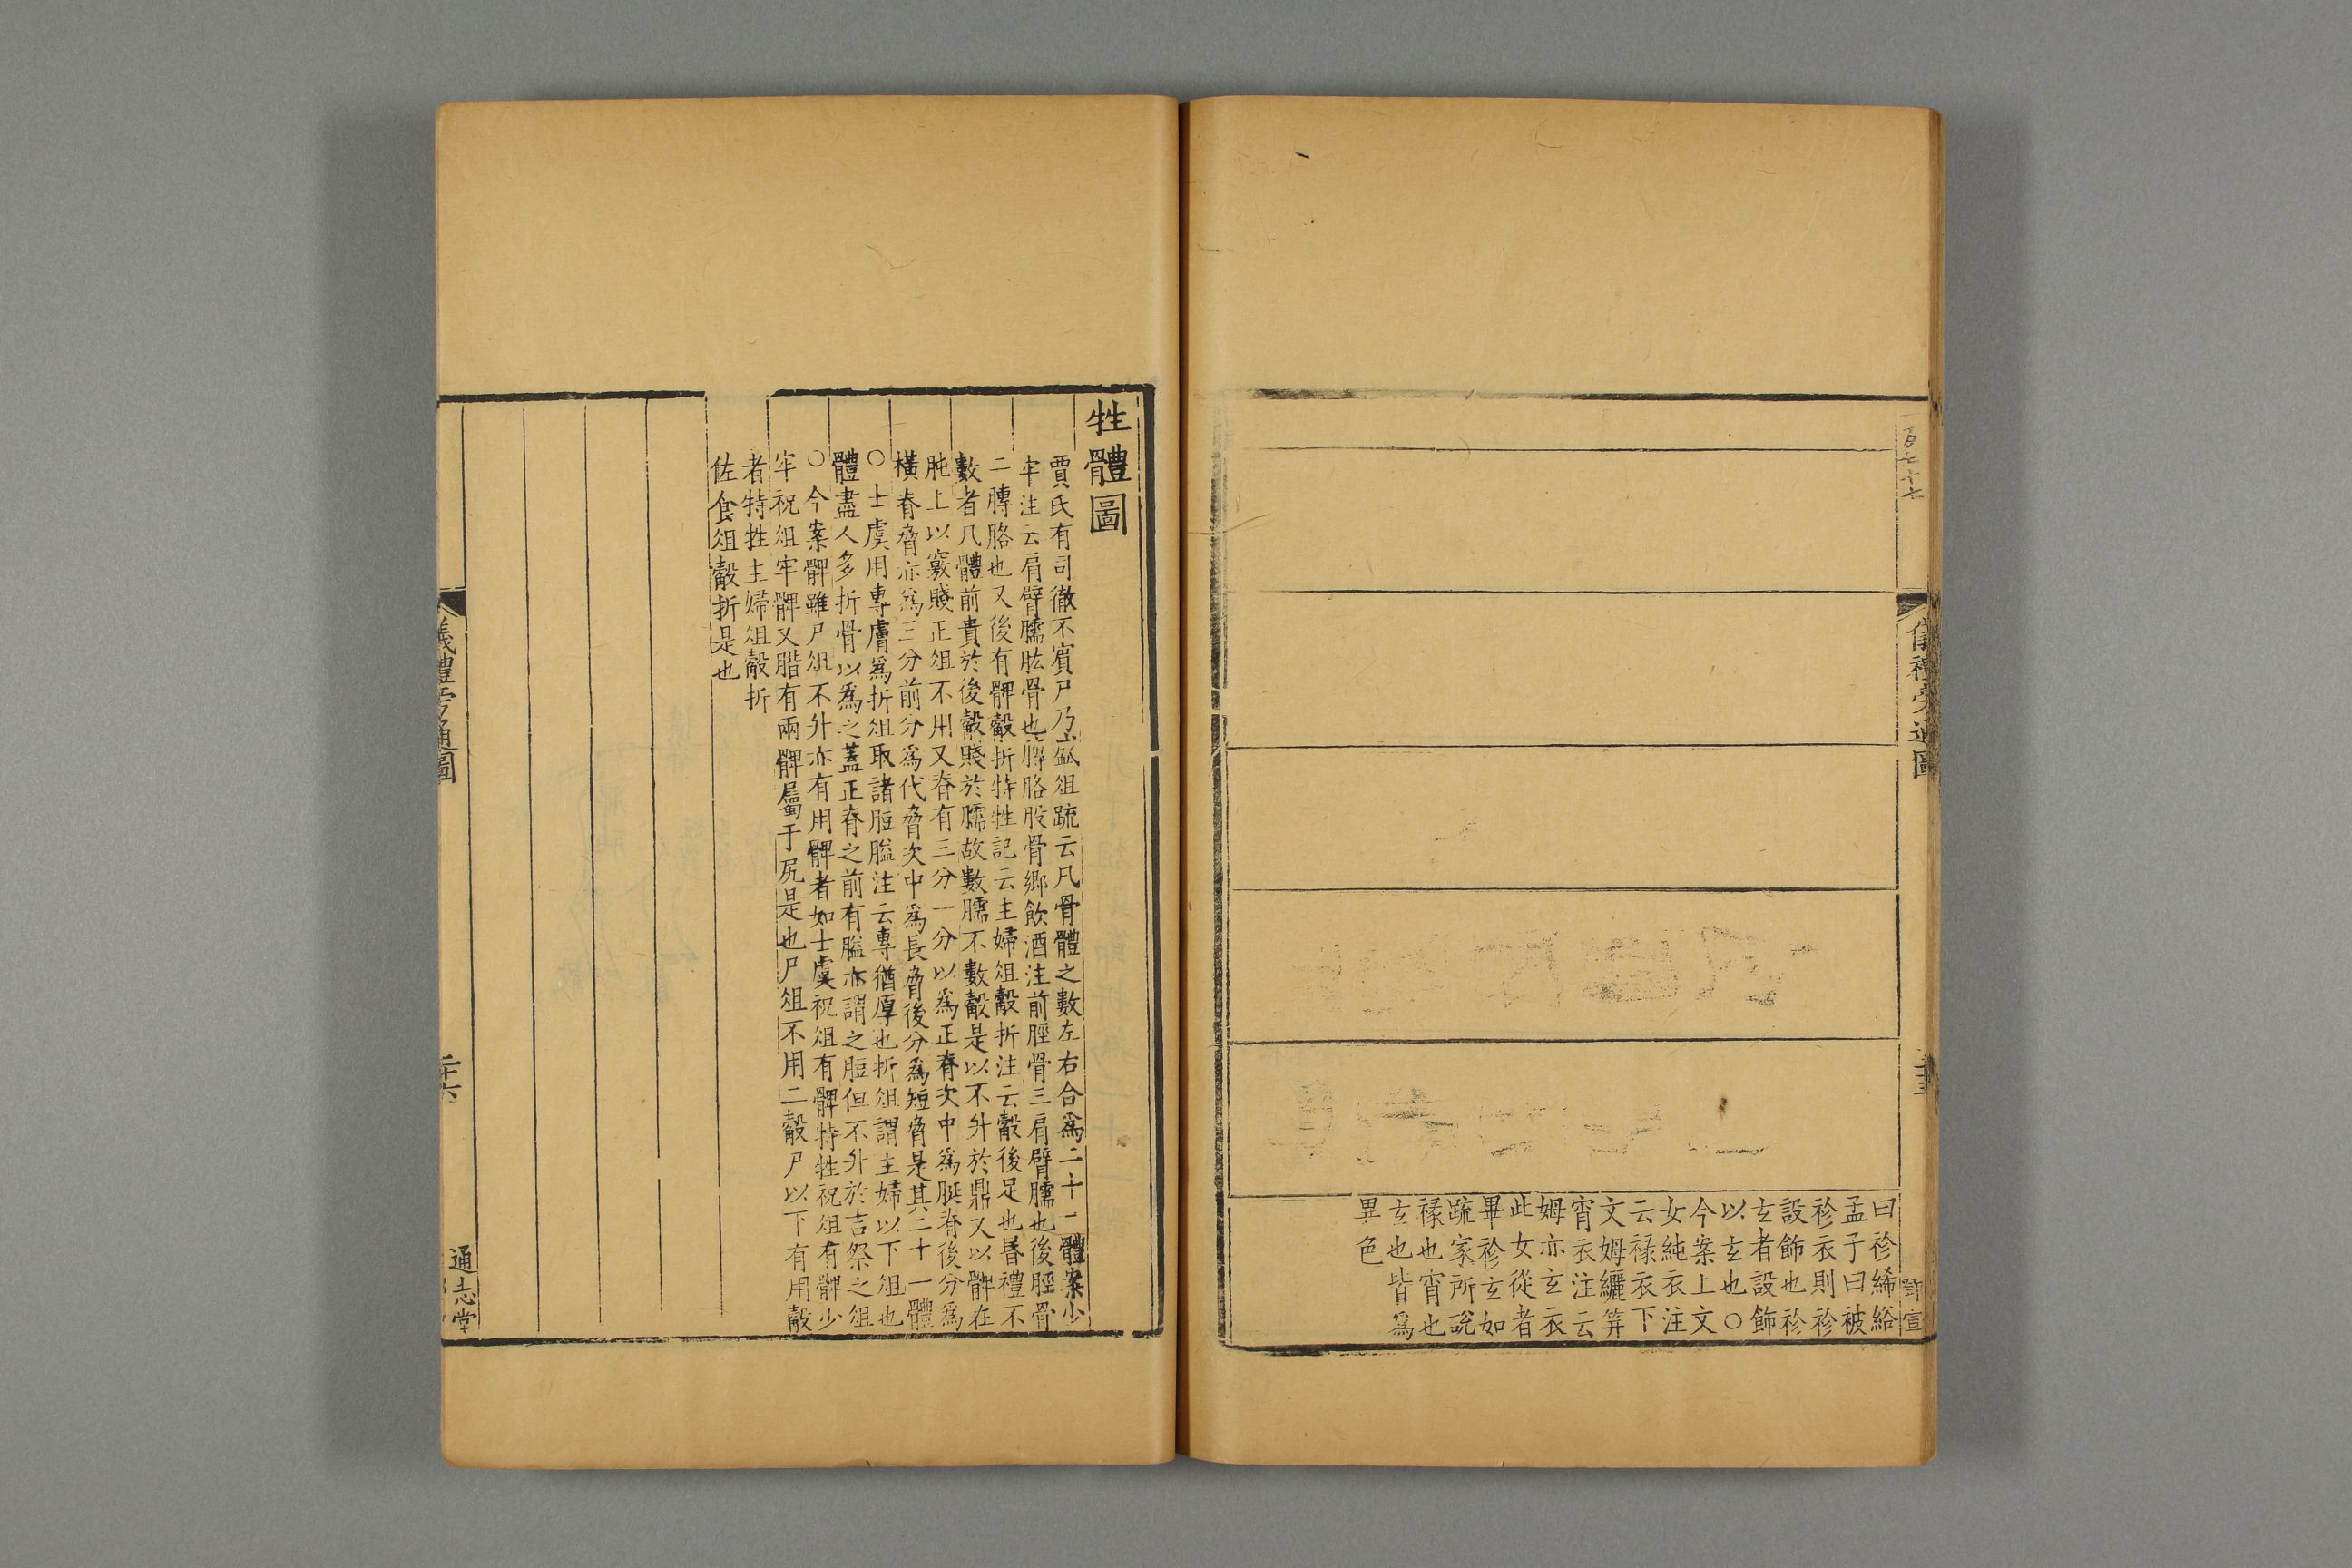 百七十七
儀禮旁通圖
鄧宣
曰袗絺綌
孟子曰被
袗衣則袗
設飾也袗
玄者設飾
以玄也〇
今案上文
女純衣注
云褖衣下
文姆纚笄
宵衣注云
姆亦玄衣
此女從者
畢袗玄如
疏家所說
褖也宵也
玄也皆爲
異色
牲體圖
賈氏有司徹不賓尸乃盛俎疏云凡骨體之數左右合爲二十一體案少
牢注云肩臂臑肱骨也膊胳股骨鄉飲酒注前脛骨三肩臂臑也後脛骨
二膊胳也又後有髀觳折特牲記云主婦俎觳折注云觳後足也昬禮不
數者凡體前貴於後觳賤於臑故數臑不數觳是以不升於鼎又以髀在
肫上以竅賤正俎不用又脊有三分一分以爲正脊次中爲脡脊後分爲
橫脊脅亦爲三分前分爲代脅次中爲長脅後分爲短脅是其二十一體
〇士虞用專膚爲折俎取諸脰膉注云專猶厚也折俎謂主婦以下俎也
體盡人多折骨以爲之蓋正脊之前有膉亦謂之脰但不升於吉祭之俎
〇今案髀雖尸俎不升亦有用髀者如士虞祝俎有髀特牲祝俎有髀少
牢祝俎牢髀又腊有兩髀屬于尻是也尸俎不用二觳尸以下有用觳
者特牲主婦俎觳折
佐食俎觳折是也
儀禮旁通圖
二十六
通志堂